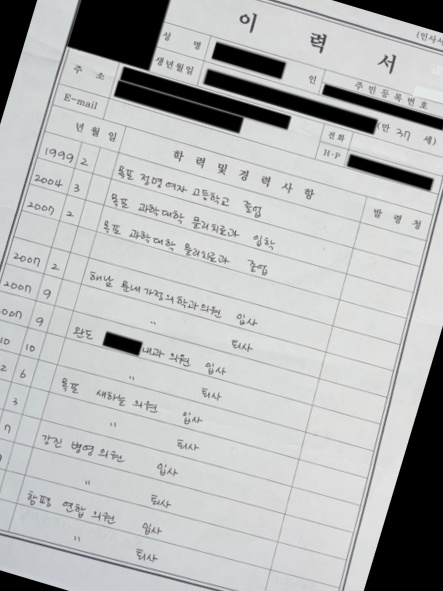 (인사서
이 력 서
성 명
인
주 민 등 록 번 호
생년월일
(만 37 세)
주 소
전화
E-mail
H·P
년 월 일
학 력 및 경 력 사 항
발 령 청
1999 2 목포 정명여자 고등학교 졸업
2004 3 목포 과학대학 물리치료과 입학
2007 2 목포 과학대학 물리치료과 졸업
2007 2 해남 문내가정의학과의원 입사
2007 9 〃 퇴사
007 9 완도 내과 의원 입사
10 10 〃 퇴사
2 6 목포 새하늘 의원 입사
3 〃 퇴사
7 강진 병영 의원 입사
〃 퇴사
함평 연합 의원 입사
〃 퇴사